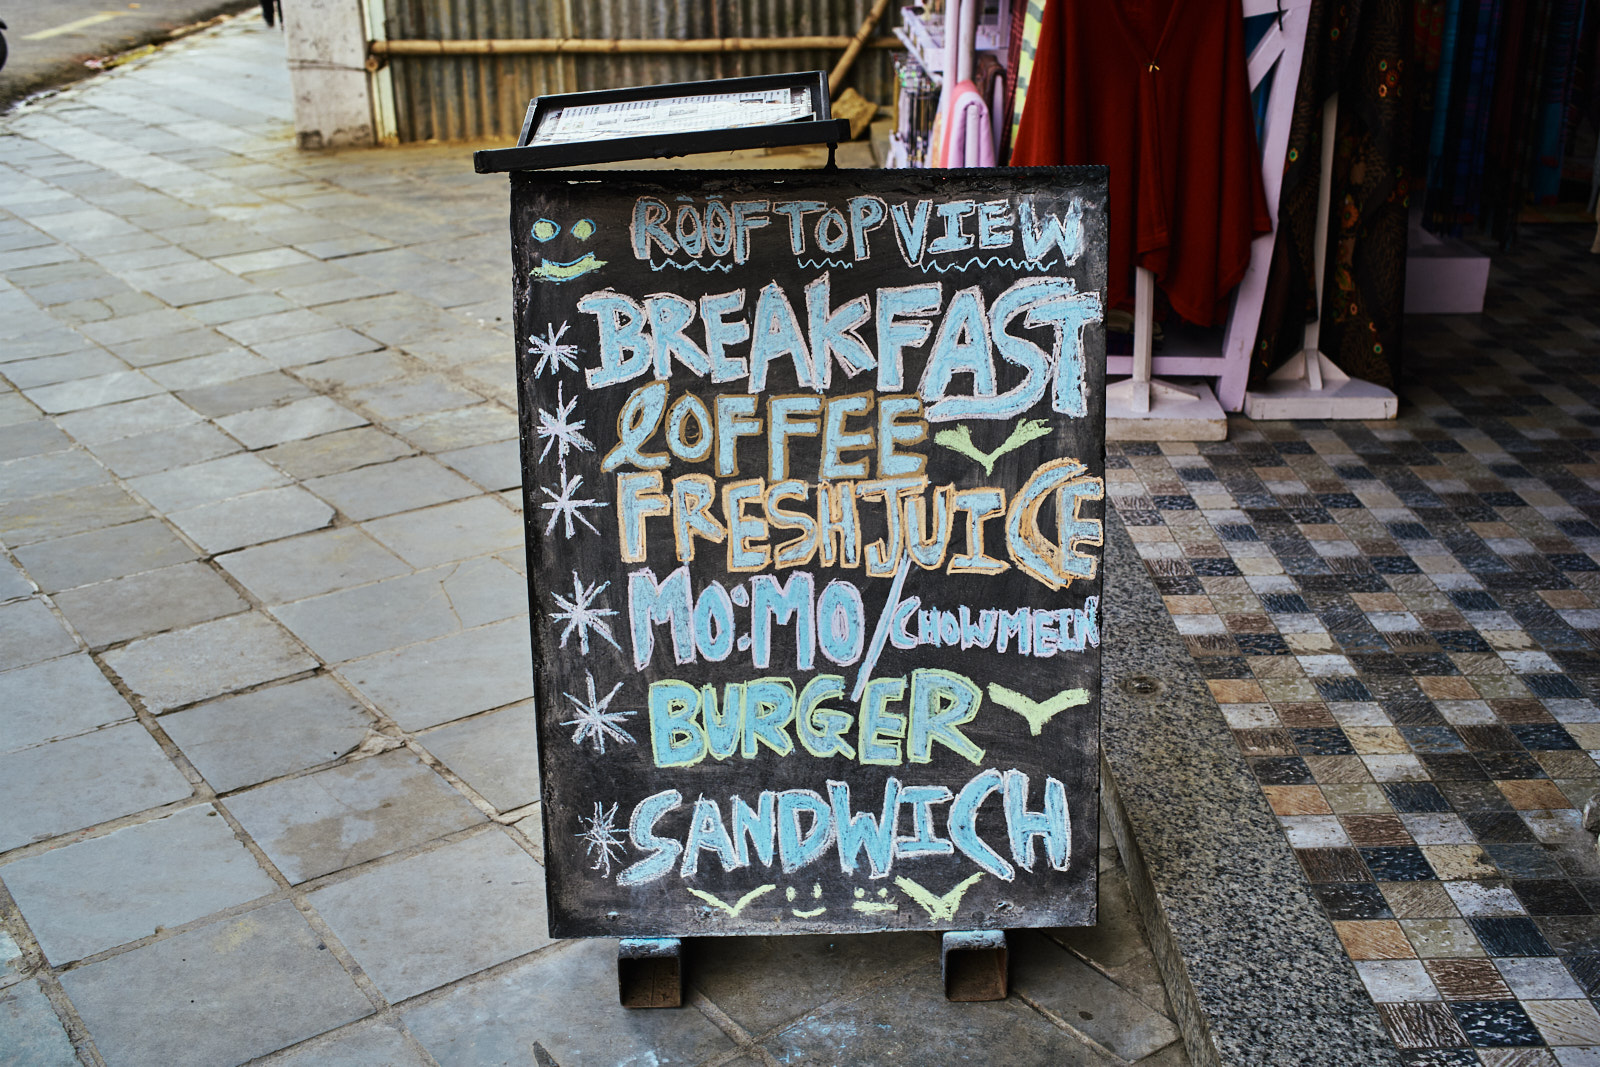 ROOFTOP VIEW
BREAKFAST
COFFEE
FRESH JUICE
MO:MO/CHOWMEIN
BURGER
SANDWICH